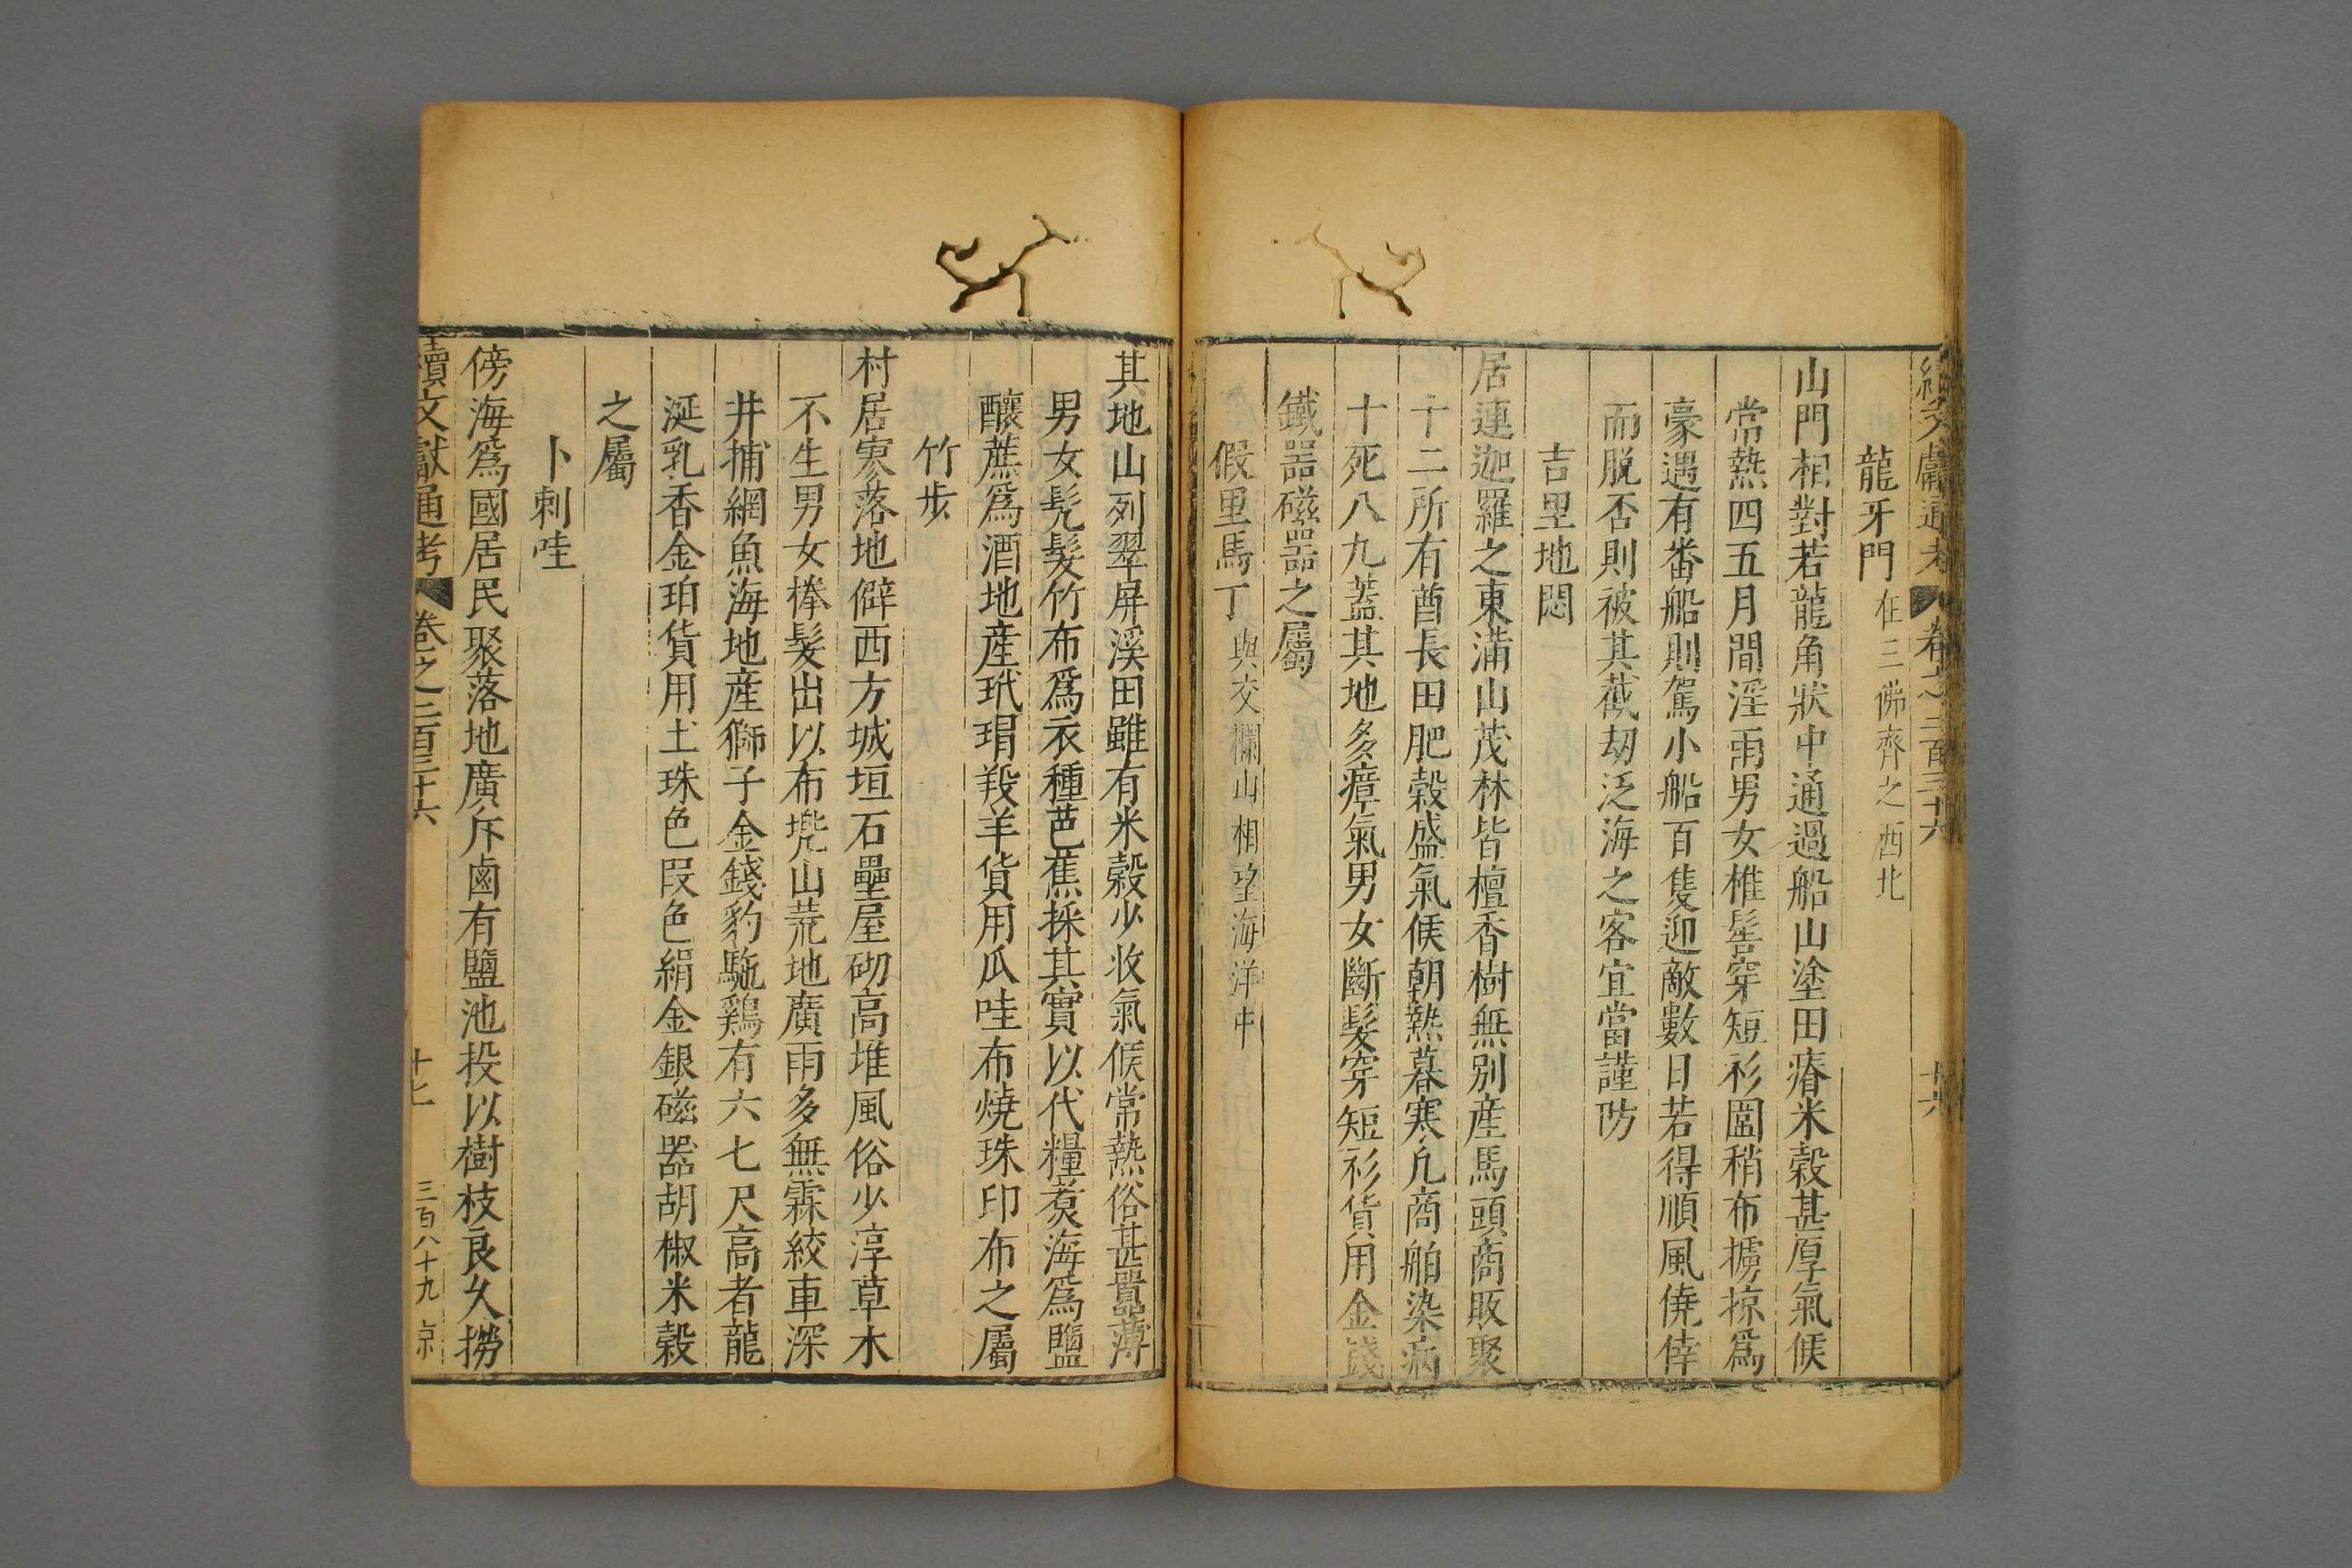 續文獻通考 卷之二百三十六 十六
龍牙門在三佛齊之西北
山門相對若龍角狀中通過船山塗田瘠米穀甚厚氣候
常熱四五月間淫雨男女椎髻穿短衫圍稍布擄掠爲
豪遇有番船則駕小船百隻迎敵數日若得順風僥倖
而脱否則被其截刼泛海之客宜當謹防
吉里地悶
居連迦羅之東滿山茂林皆檀香樹無別産馬頭商販聚
十二所有酋長田肥穀盛氣候朝熱暮寒凢商舶染病
十死八九蓋其地多瘴氣男女斷髮穿短衫貨用金錢
鐵器磁器之屬
假里馬丁與交欄山相望海洋中
其地山列翠屏溪田雖有米穀少收氣候常熱俗甚囂薄
男女髠髮竹布爲衣種芭蕉採其實以代糧煑海爲鹽
釀蔗爲酒地産玳瑁羖羊貨用瓜哇布燒珠印布之屬
竹步
村居寥落地僻西方城垣石壘屋砌高堆風俗少淳草木
不生男女拳髮出以布兠山荒地廣雨多無霖絞車深
井捕網魚海地産獅子金錢豹駞鷄有六七尺高者龍
涎乳香金珀貨用土珠色段色絹金銀磁器胡椒米穀
之屬
卜剌哇
傍海爲國居民聚落地廣斥鹵有鹽池投以樹枝良乆撈
續文獻通考 卷之二百三十六 十七 三百八十九 京